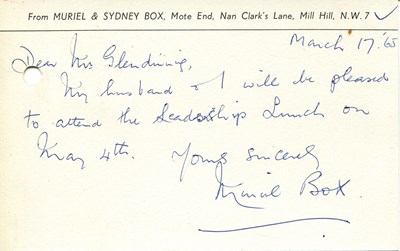 From MURIEL & SYDNEY BOX, Mote End, Nan Clark's Lane, Mill Hill, N.W.7
March 17, '65
Dear Mrs Glendinning,
My husband & I will be pleased
to attend the Leadership Lunch on
May 4th. Yours sincerely
Muriel Box.